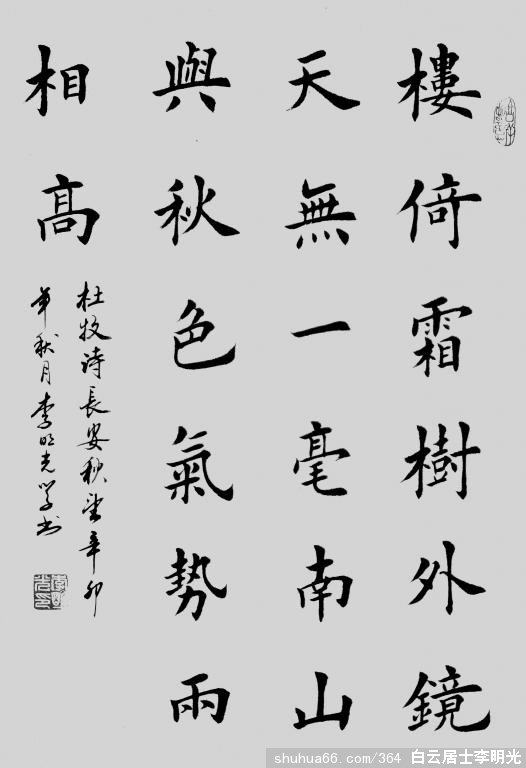 樓倚霜樹外鏡
天無一毫南山
與秋色氣勢兩
相髙
杜牧诗長安秋望辛卯
年秋月李明光学书
shuhua66.com/364 白云居士李明光